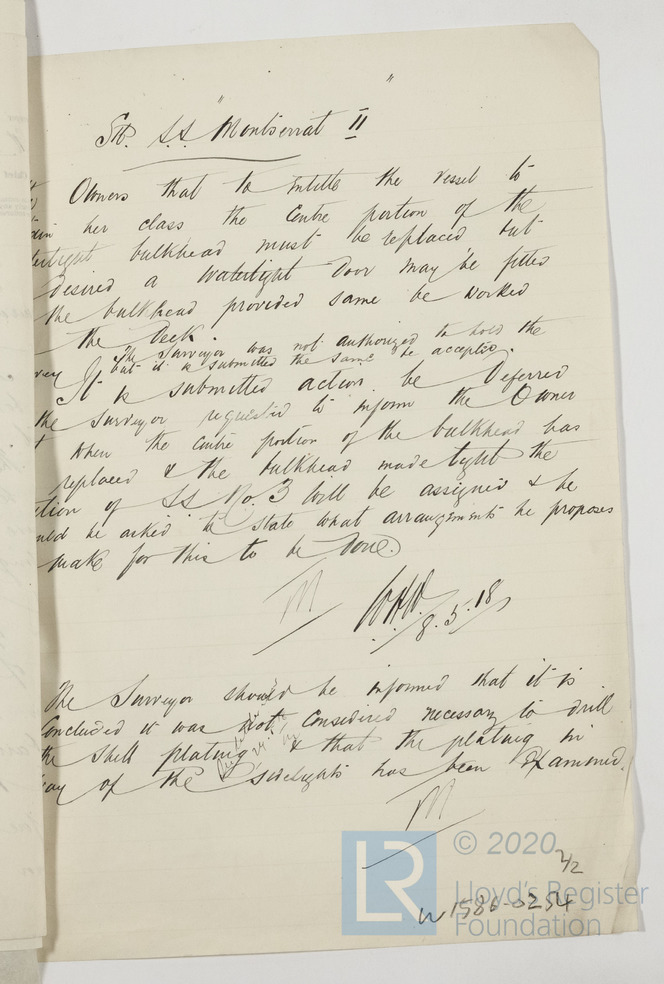 Stl. S.S. "Montserrat" II
Owners that to entitle the vessel to
her class the centre portion of the
bulkhead must be replaced but
desired a watertight door may be fitted
the bulkhead provided same be worked
the deck.
The Surveyor was not authorized to hold the
but it is submitted the same be accepted.
It is submitted action be deferred
the surveyor requested to inform the Owner
when the centre portion of the bulkhead has
replaced & the bulkhead made tight the
of SS No. 3 will be assigned & he
be asked to state what arrangements he proposes
make for this to be done.
M
W.H.W.
8.5.18
The Surveyor should be informed that it is
concluded it was not considered necessary to drill
the shell plating & that the plating in
way of the sidelights has been examined.
M
© 2020
2/2
Lloyd's Register
W1586-0254
Foundation
LR